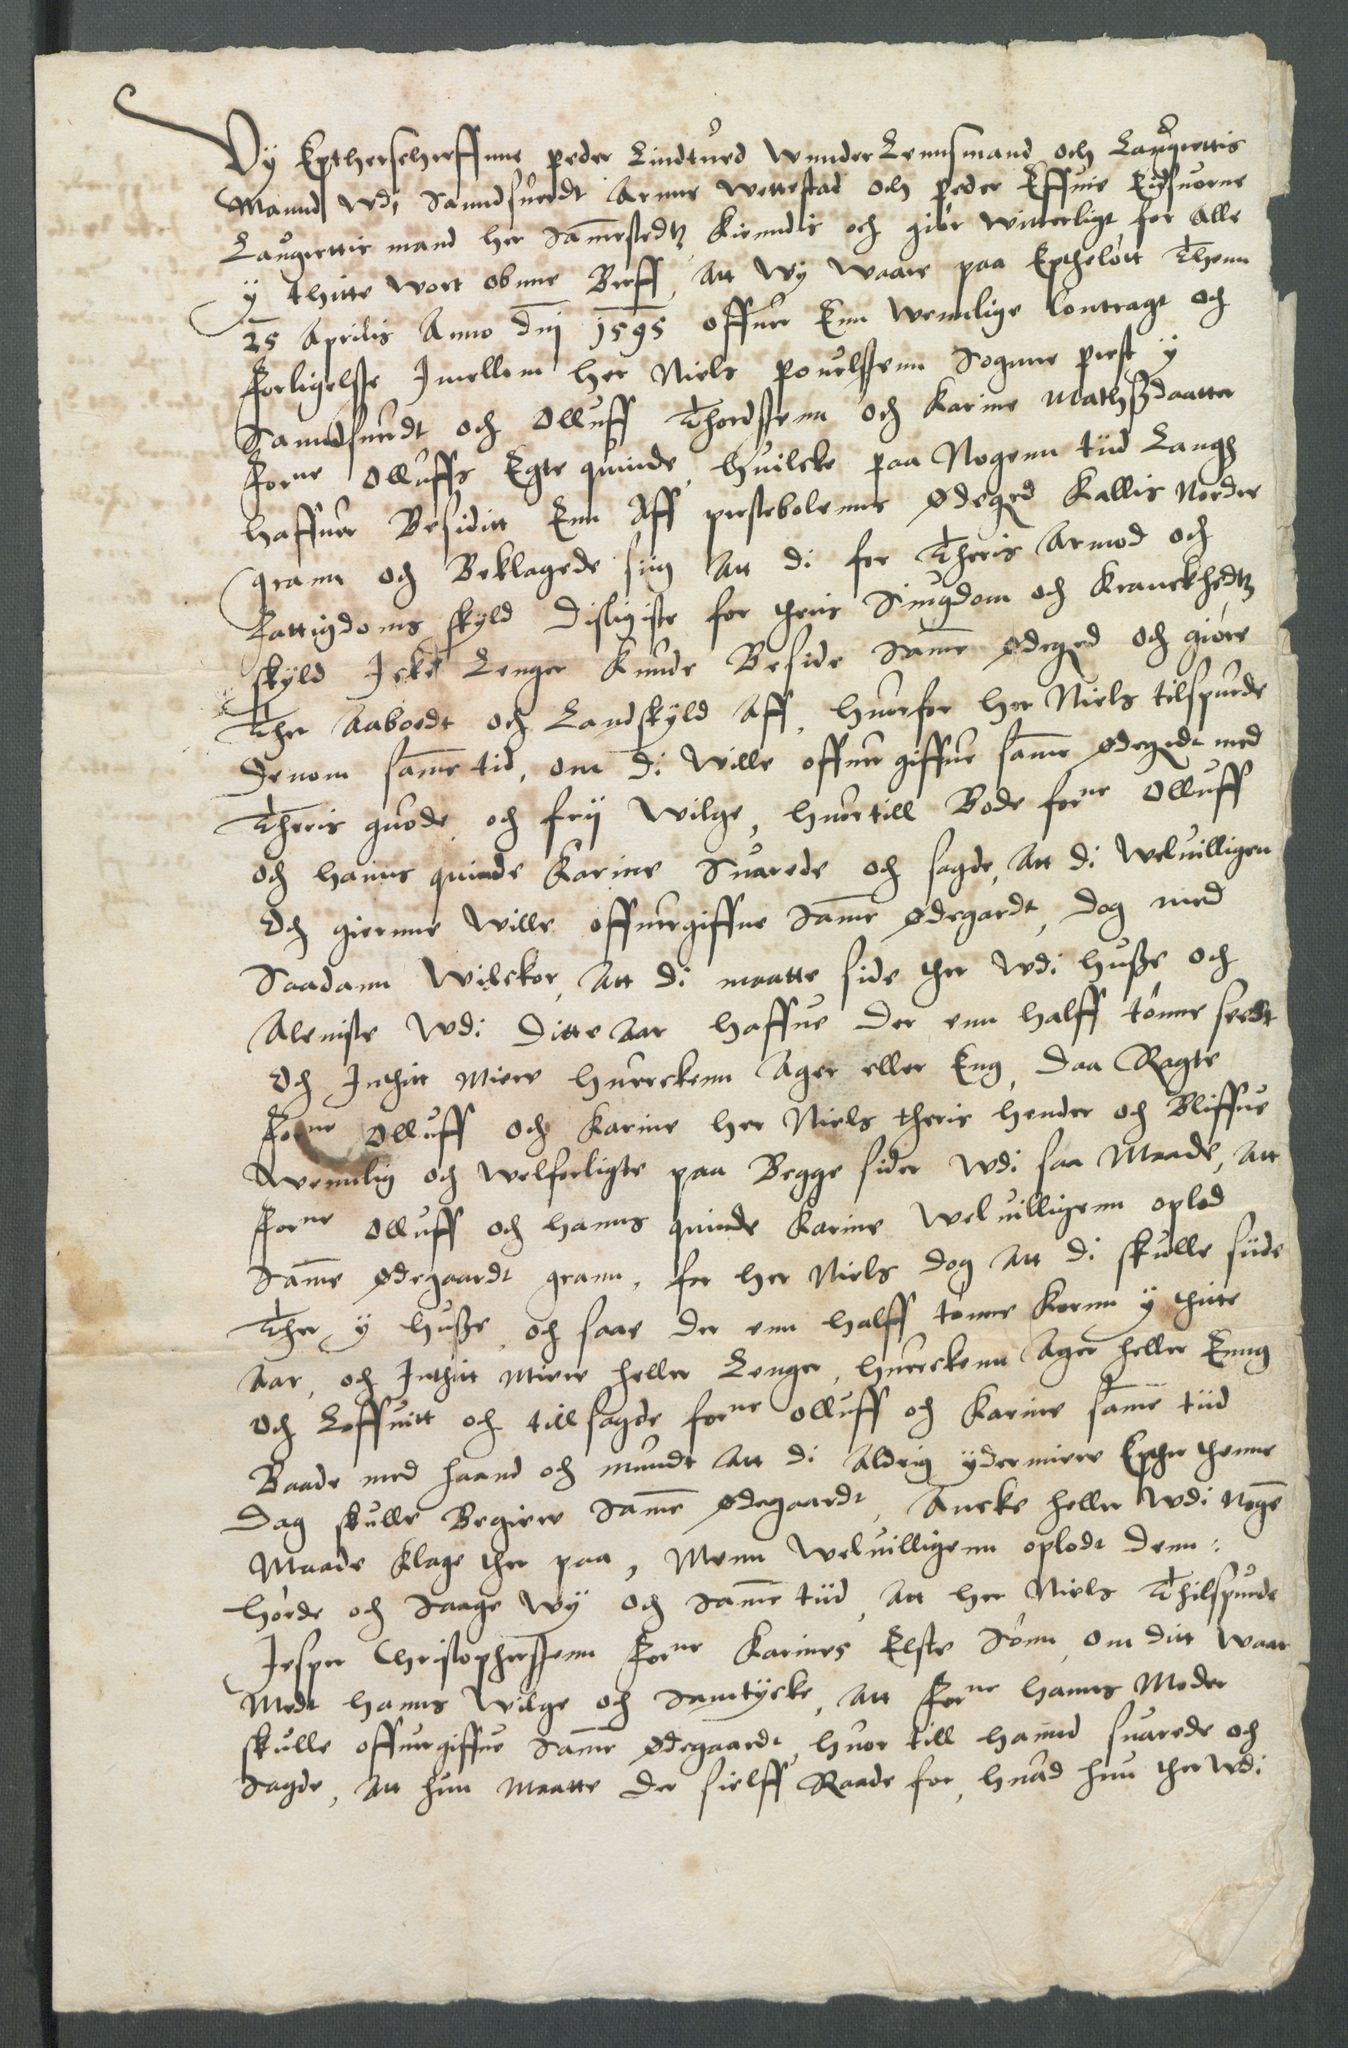 Vÿ Epthersschreffnne peder Lindtued Wnnder Lennsmand och Laugrettis
Mannd Wdi Sanndsuerdt Arnne Wettestad och peder Effuie Eidsuorne
Laugrettis mand her Sammestedtz Kiendis och giør witterligt for Alle
ÿ thitte wort obnne Breff, Att Wÿ waare paa Epthelött Thenn
25 Aprilis Anno dnj 1595 offuer Enn Wennlige Contragt och
Forligelsse Imellom her Niels pouelssenn Sognne prest ÿ
Sanndsuerdt och Olluff Thordssenn och Karine Mathsdaatter
Forne Olluffs Egte quinde, huilcke paa Nogenn tiid Langh
haffuer Besiditt Enn Aff prestebolenns Ødegrd Kallis Nordre
grann och Beklagede siig Att di for Theris Armod och
Fattigdoms skÿld disligiste for theris Siugdom och Kranckhedtz
skÿld Icke Lenger Kunde Beside Samme Ødegrd och giøre
Ther Aaboedt och Landskÿld Aff, huorfor her Niels tilspurde
Denom samme tid, om di Wille offuer giffue samme Ødegrdt med
Theris guode och frÿ Wilge, huortill Bode forne Olluff
och hanns quinde Karine Suarede och sagde, Att di Weluilligen
Och gierne Wille offuergiffue Samme Ødegardt, dog med
Saadann Wilckor, Att di maatte side ther Wdi husse och
Aleniste Wdi Ditte Aar haffue der enn halff tönne seedt
Och Inthitt Miere huerckenn Ager eller Eng, daa Ragte
Forne Olluff och Karine her Niels theris hender och Bliffue
Wennlig och Welforligte paa Begge sider Wdi saa Maade, Att
Forne Olluff och hanns quinde Karine Weluilligenn oplod
Samme Ødegaardt grann, for her Niels dog Att di skulle siide
Ther ÿ husse, och saae der enn halff tonne Kornn ÿ thitte
Aar, och Inthitt Miere heller Lenger, huerckenn Ager heller Enng
Och Loffuitt och till sagde forne Olluff och Karine samme tiid
Baade med haand och mundt Att di Aldrig ÿdermiere Epther thenne
Dag skulle Begiere Samme Ødegaardt, Ancke heller Wdi Nogen
Maade Klage ther paa, Menn Weluilligenn oplodt denn:
hörde och Saage Wÿ och Samme tiid, Att her Niels Thilspurde
Jesper Christopherssenn Forne Karines Elste Sönn, om ditt Waar
Medt hanns Wilge och Samtÿcke, Att Forne hanns Moder
skulle offuergiffue Samme Ødegaardt, huor till hannd suarede och
Sagde, Att hun Maatte der sielff Raade for, huad hun ther Wdi